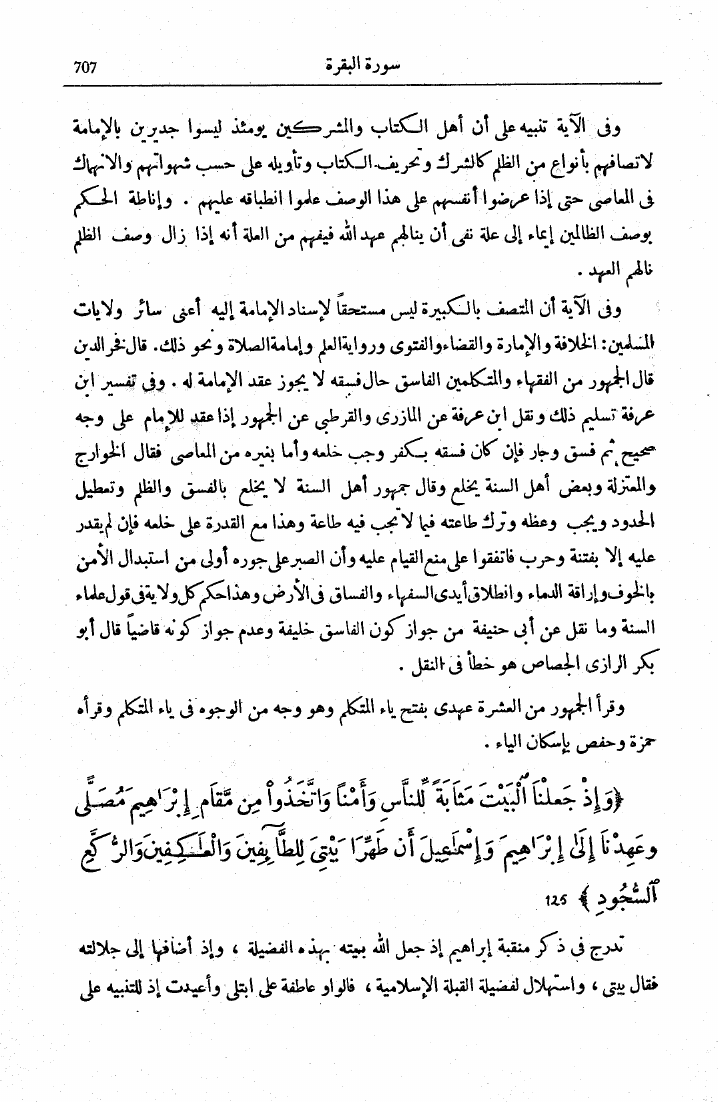 سورة البقرة 707
وفى الآية تنبيه على أن أهل الكتاب والمشركين يومئذ ليسوا جديرين بالإمامة
لاتصافهم بأنواع من الظلم كالشرك وتحريف الكتاب وتأويله على حسب شهواتهم والانهماك
فى المعاصى حتى إذا عرضوا أنفسهم على هذا الوصف علموا انطباقه عليهم . وإناطة الحكم
بوصف الظالمين إيماء إلى علة نفى أن ينالهم عهد الله فيفهم من العلة أنه إذا زال وصف الظلم
نالهم العهد .
وفى الآية أن المتصف بالكبيرة ليس مستحقاً لإسناد الإمامة إليه أعنى سائر ولايات
المسلمين : الخلافة والإمارة والقضاء والفتوى ورواية العلم وإمامة الصلاة ونحو ذلك. قال فخر الدين
قال الجمهور من الفقهاء والمتكلمين الفاسق حال فسقه لا يجوز عقد الإمامة له . وفى تفسير ابن
عرفة تسليم ذلك ونقل ابن عرفة عن المازرى والقرطبى عن الجمهور إذا عقد للإمام على وجه
صحيح ثم فسق وجار فإن كان فسقه بكفر وجب خلعه وأما بغيره من المعاصى فقال الخوارج
والمعتزلة وبعض أهل السنة يخلع وقال جمهور أهل السنة لا يخلع بالفسق والظلم وتعطيل
الحدود ويجب وعظه وترك طاعته فيما لا تجب فيه طاعة وهذا مع القدرة على خلعه فإن لم يقدر
عليه إلا بفتنة وحرب فاتفقوا على منع القيام عليه وأن الصبر على جوره أولى من استبدال الأمن
بالخوف وإراقة الدماء وانطلاق أيدى السفهاء والفساق فى الأرض وهذا حكم كل ولاية فى قول علماء
السنة وما نقل عن أبى حنيفة من جواز كون الفاسق خليفة وعدم جواز كونه قاضياً قال أبو
بكر الرازى الجصاص هو خطأ فى النقل .
وقرأ الجمهور من العشرة عهدى بفتح ياء المتكلم وهو وجه من الوجوه فى ياء المتكلم وقرأه
حمزة وحفص بإسكان الياء .
﴿وَإِذْ جَعَلْنَا ٱلْبَيْتَ مَثَابَةً لِّلنَّاسِ وَأَمْنًا وَاتَّخَذُواْ مِن مَّقَامِ إِبْرَٰهِيمَ مُصَلًّى
وَعَهِدْنَا إِلَىٰ إِبْرَاهِيمَ وَإِسْمَاعِيلَ أَن طَهِّرَا بَيْتِىَ لِلطَّآئِفِينَ وَالْعَٰكِفِينَ وَالرُّكَّعِ
ٱلسُّجُودِ ﴾ 125
تدرج فى ذكر منقبة إبراهيم إذ جعل الله بيته بهذه الفضيلة ، وإذ أضافها إلى جلالته
فقال بيتى ، واستهلال لفضيلة القبلة الإسلامية ، فالواو عاطفة على ابتلى وأعيدت إذ للتنبيه على